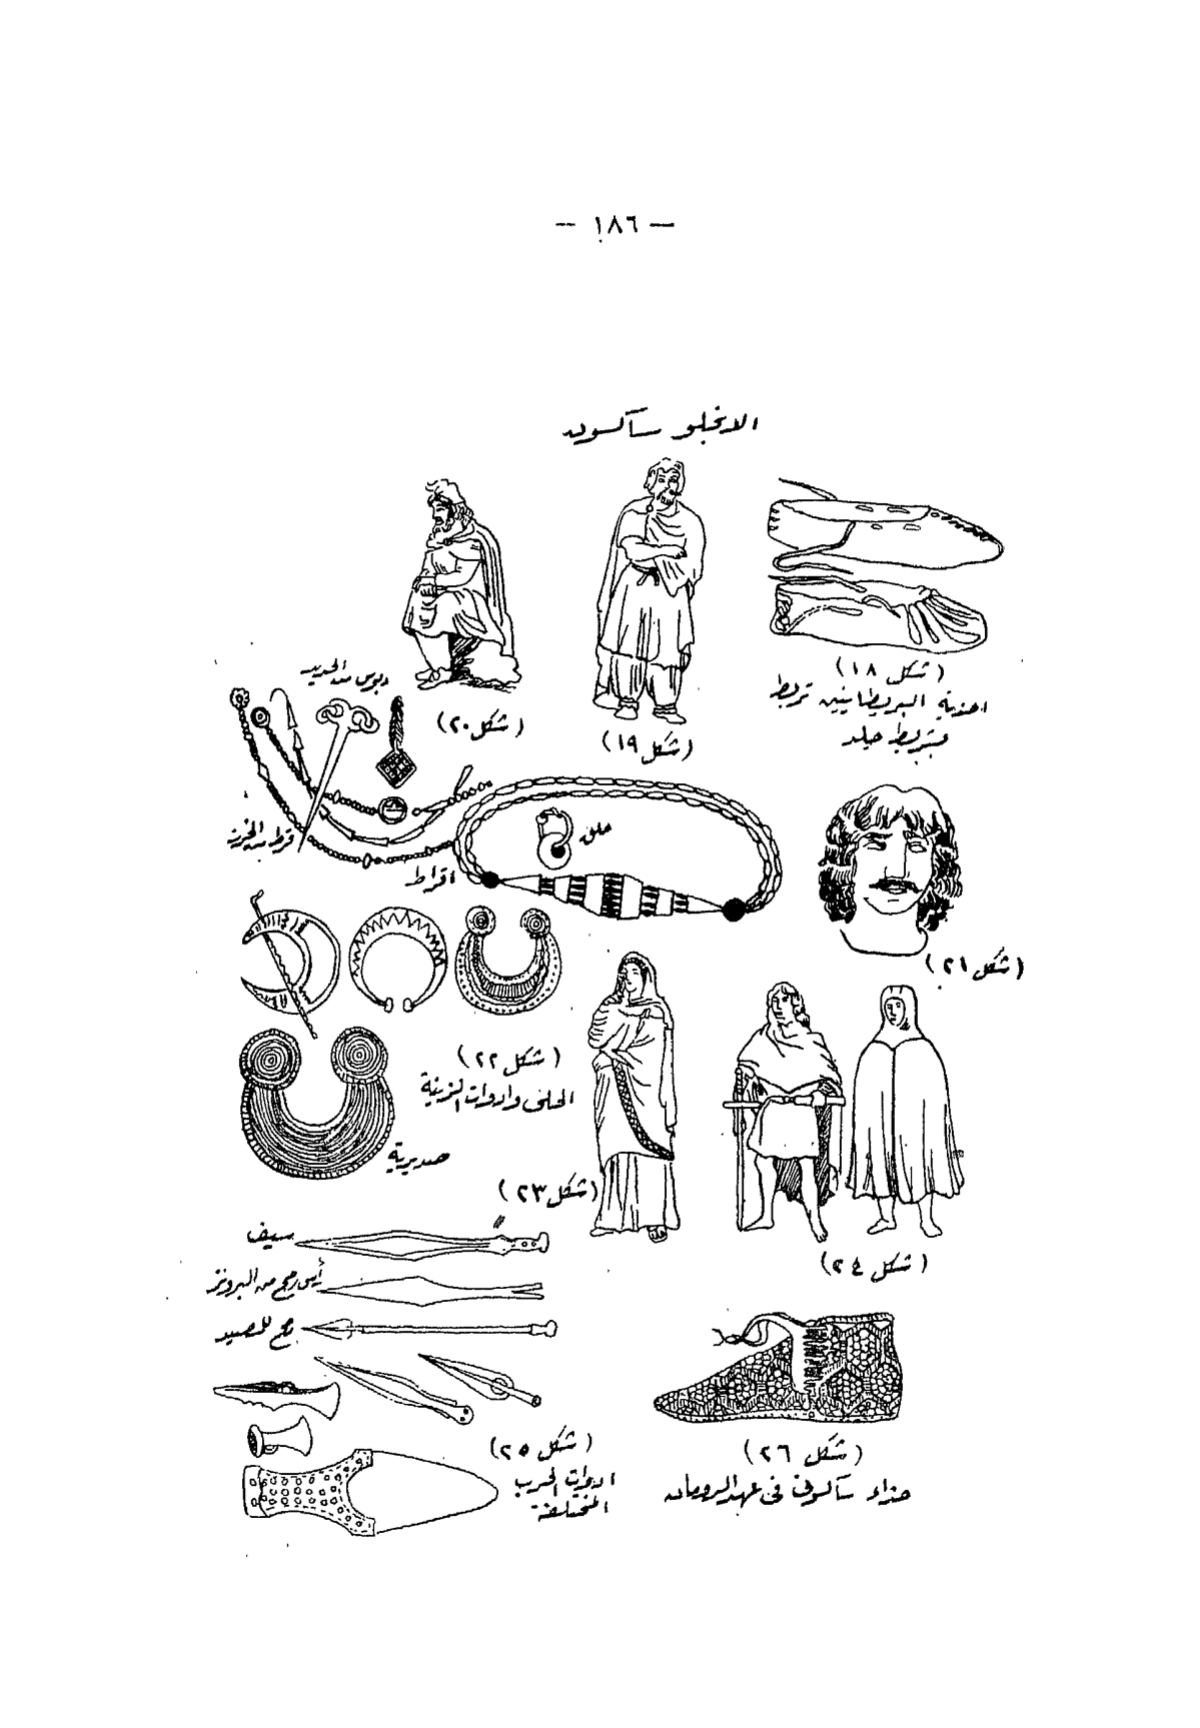 — ١٨٦ —
الانجلو سآكسون
(شكل ١٨)
احذية البريطانيين تربط
بشريط جلد
(شكل ١٩)
(شكل ٢٠)
دبوس من الحديد
قرط من الخرز
حلق
اقراط
(شكل ٢١)
(شكل ٢٢)
الحلى وادوات الزينة
صديرية
(شكل ٢٣)
(شكل ٢٤)
سيف
رأس رمح من البرونز
رمح للصيد
(شكل ٢٥)
ادوات الحرب
المختلفة
(شكل ٢٦)
حذاء سآكسونى فى عهد الرومان